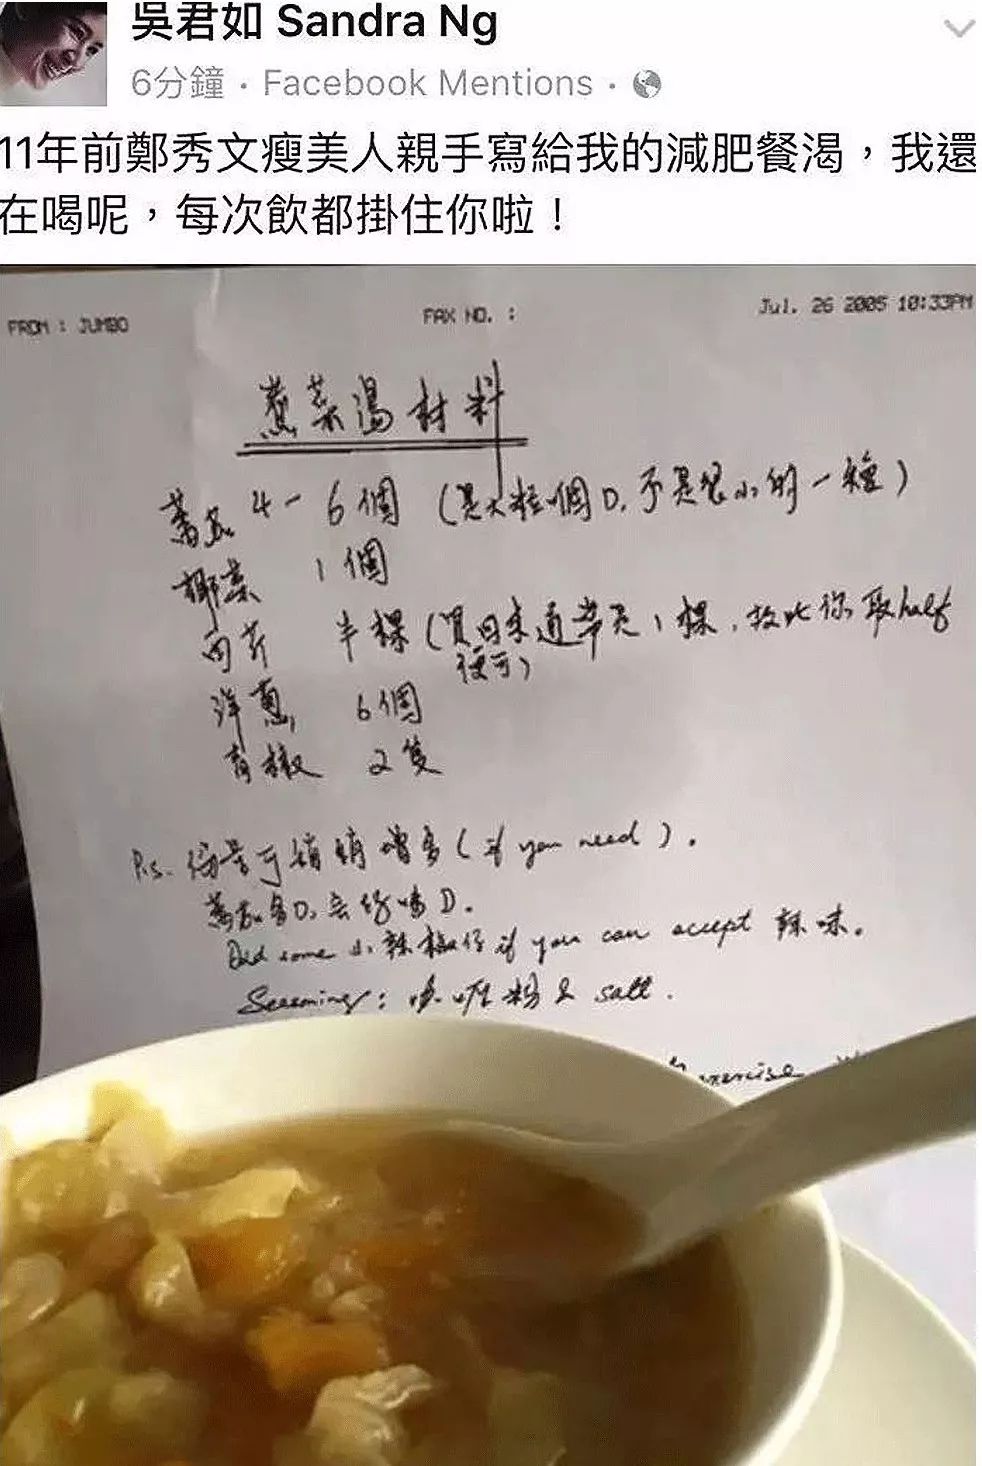 吳君如 Sandra Ng
6分鐘 · Facebook Mentions ·
11年前鄭秀文瘦美人親手寫給我的減肥餐渴，我還
在喝呢，每次飲都掛住你啦！
FROM : JUMBO FAX NO. : Jul. 26 2005 10:33PM
蕉菜湯材料
蕃茄 4-6個 (是大粒個D，不是很小的一種)
椰菜 1個
西芹 半棵 (買回來通常是1棵，故此你取half
便可)
洋蔥 6個
青椒 2隻
P.s. 份量可稍稍增多 (if you need).
蕃茄多D，會好喝D.
Add some 小辣椒仔 if you can accept 辣味。
Seasoning: 鹽 & salt.
exercise